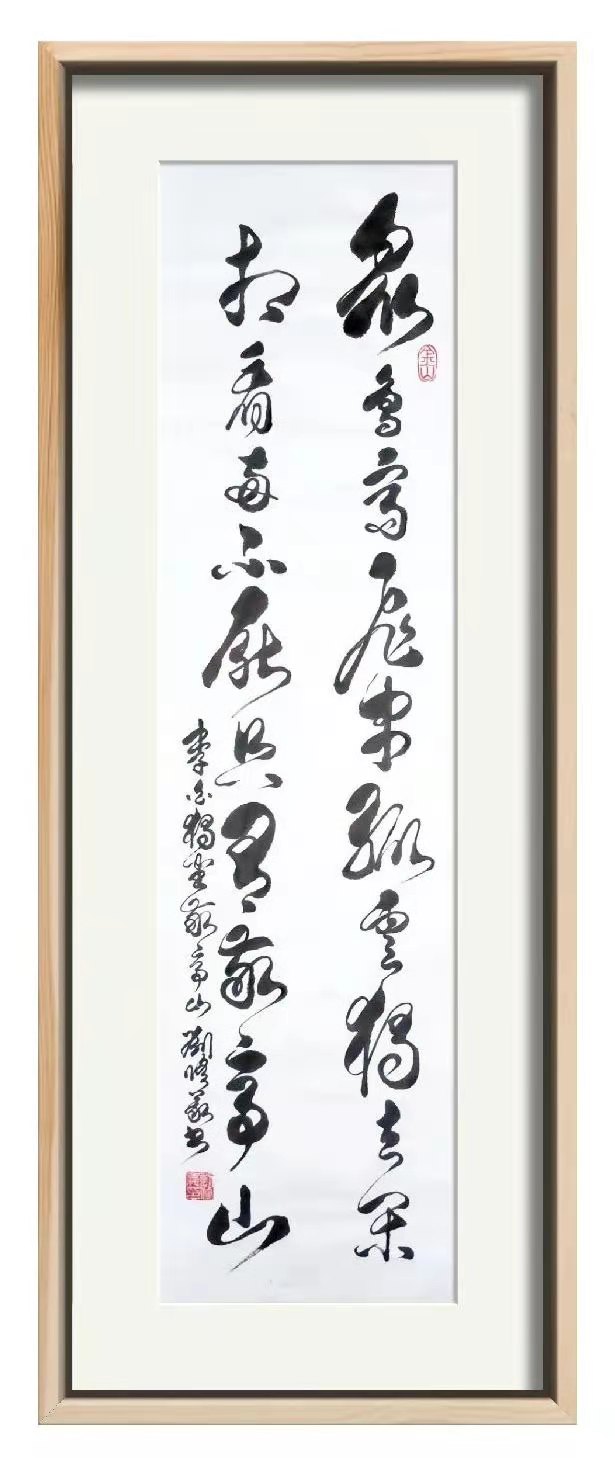 眾鳥高飛盡孤雲獨去閑
相看兩不厭只有敬亭山
李白獨坐敬亭山 劉書